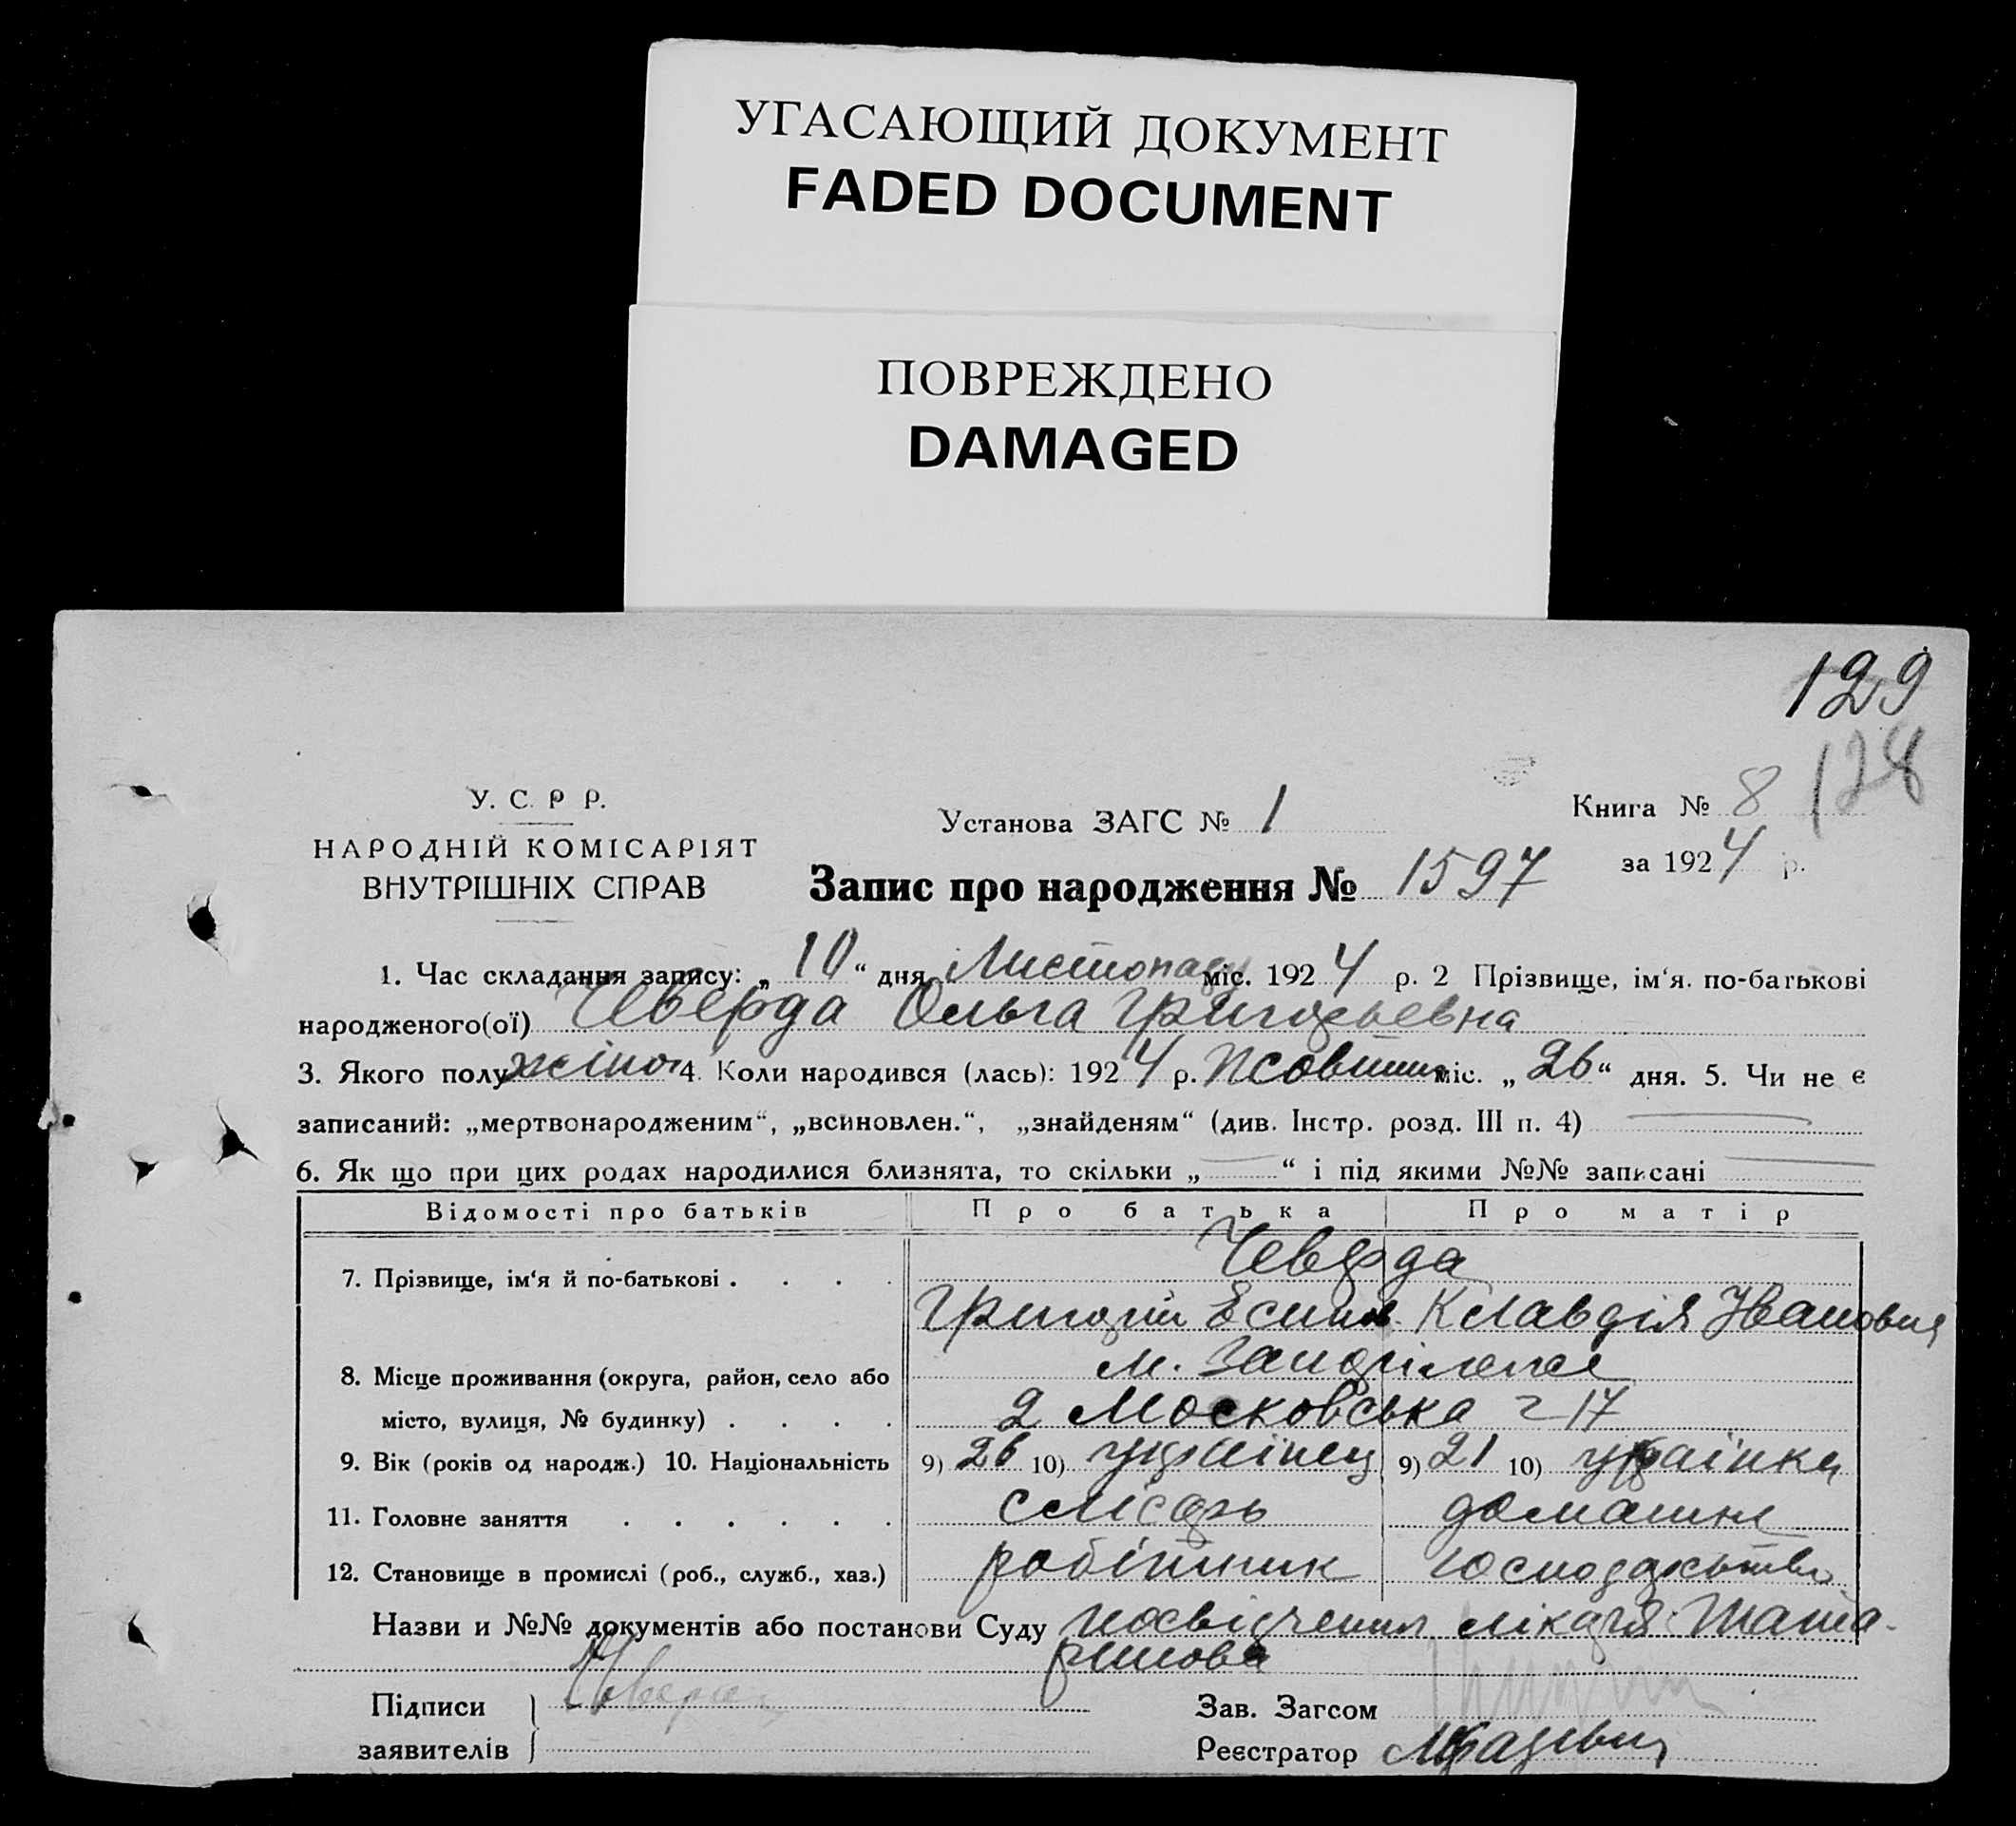 УГАСАЮЩИЙ ДОКУМЕНТ
FADED DOCUMENT
ПОВРЕЖДЕНО
DAMAGED
129
128
У. С. Р Р.
НАРОДНІЙ КОМІСАРІЯТ
ВНУТРІШНІХ СПРАВ
Установа ЗАГС № 1
Книга № 8
за 1924 р.
Запис про народження № 1597
1. Час складання запису: „10“ дня Листопаду міс. 1924 р. 2 Прізвище, ім‘я. по-батькові
народженого(ої) Чеверда Ольга Григорьевна
3. Якого полу жіно 4. Коли народився (лась): 1924 р. Жовтня міс. „26“ дня. 5. Чи не є
записаний: „мертвонародженим“, „всиновлен.“, „знайденям“ (див. Інстр. розд. III п. 4)
6. Як що при цих родах народилися близнята, то скільки „ “ і під якими №№ записані
Відомості про батьків Про батька Про матір
7. Прізвище, ім‘я й по-батькові . . . . Чеверда
Григорій Есипов. Клавдія Ивановна
8. Місце проживання (округа, район, село або м.
місто, вулиця, № будинку) . . . . 2 Московська 17
9. Вік (років од народж.) 10. Національність 9) 26 10) українец 9) 21 10) українка
11. Головне заняття . . . . . . слісарь домашнє
12. Становище в промислі (роб., служб., хаз.) робітник господарьтво
Назви и №№ документів або постанови Суду посвідчення лікаря Шата-
ринова
Підписи Чеверда
заявителів
Зав. Загсом
Реєстратор